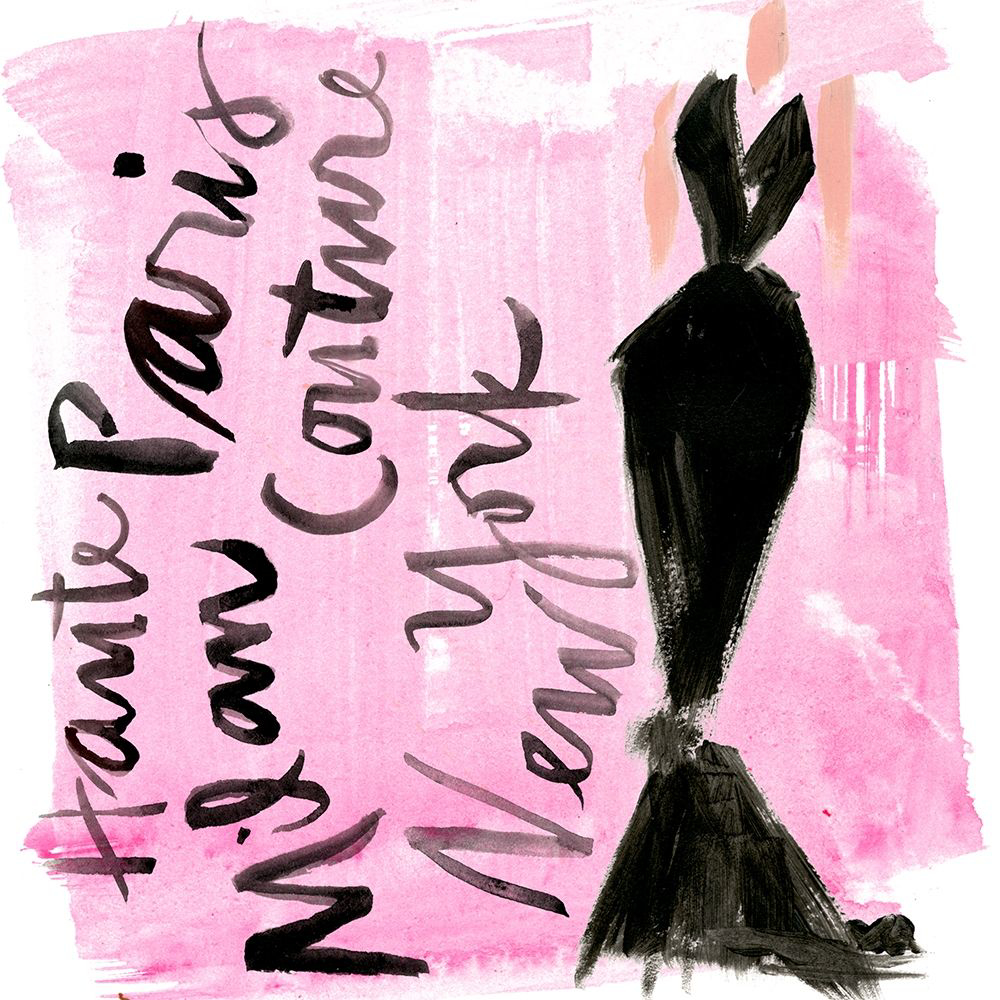 Haute Paris
Milan Couture
New York